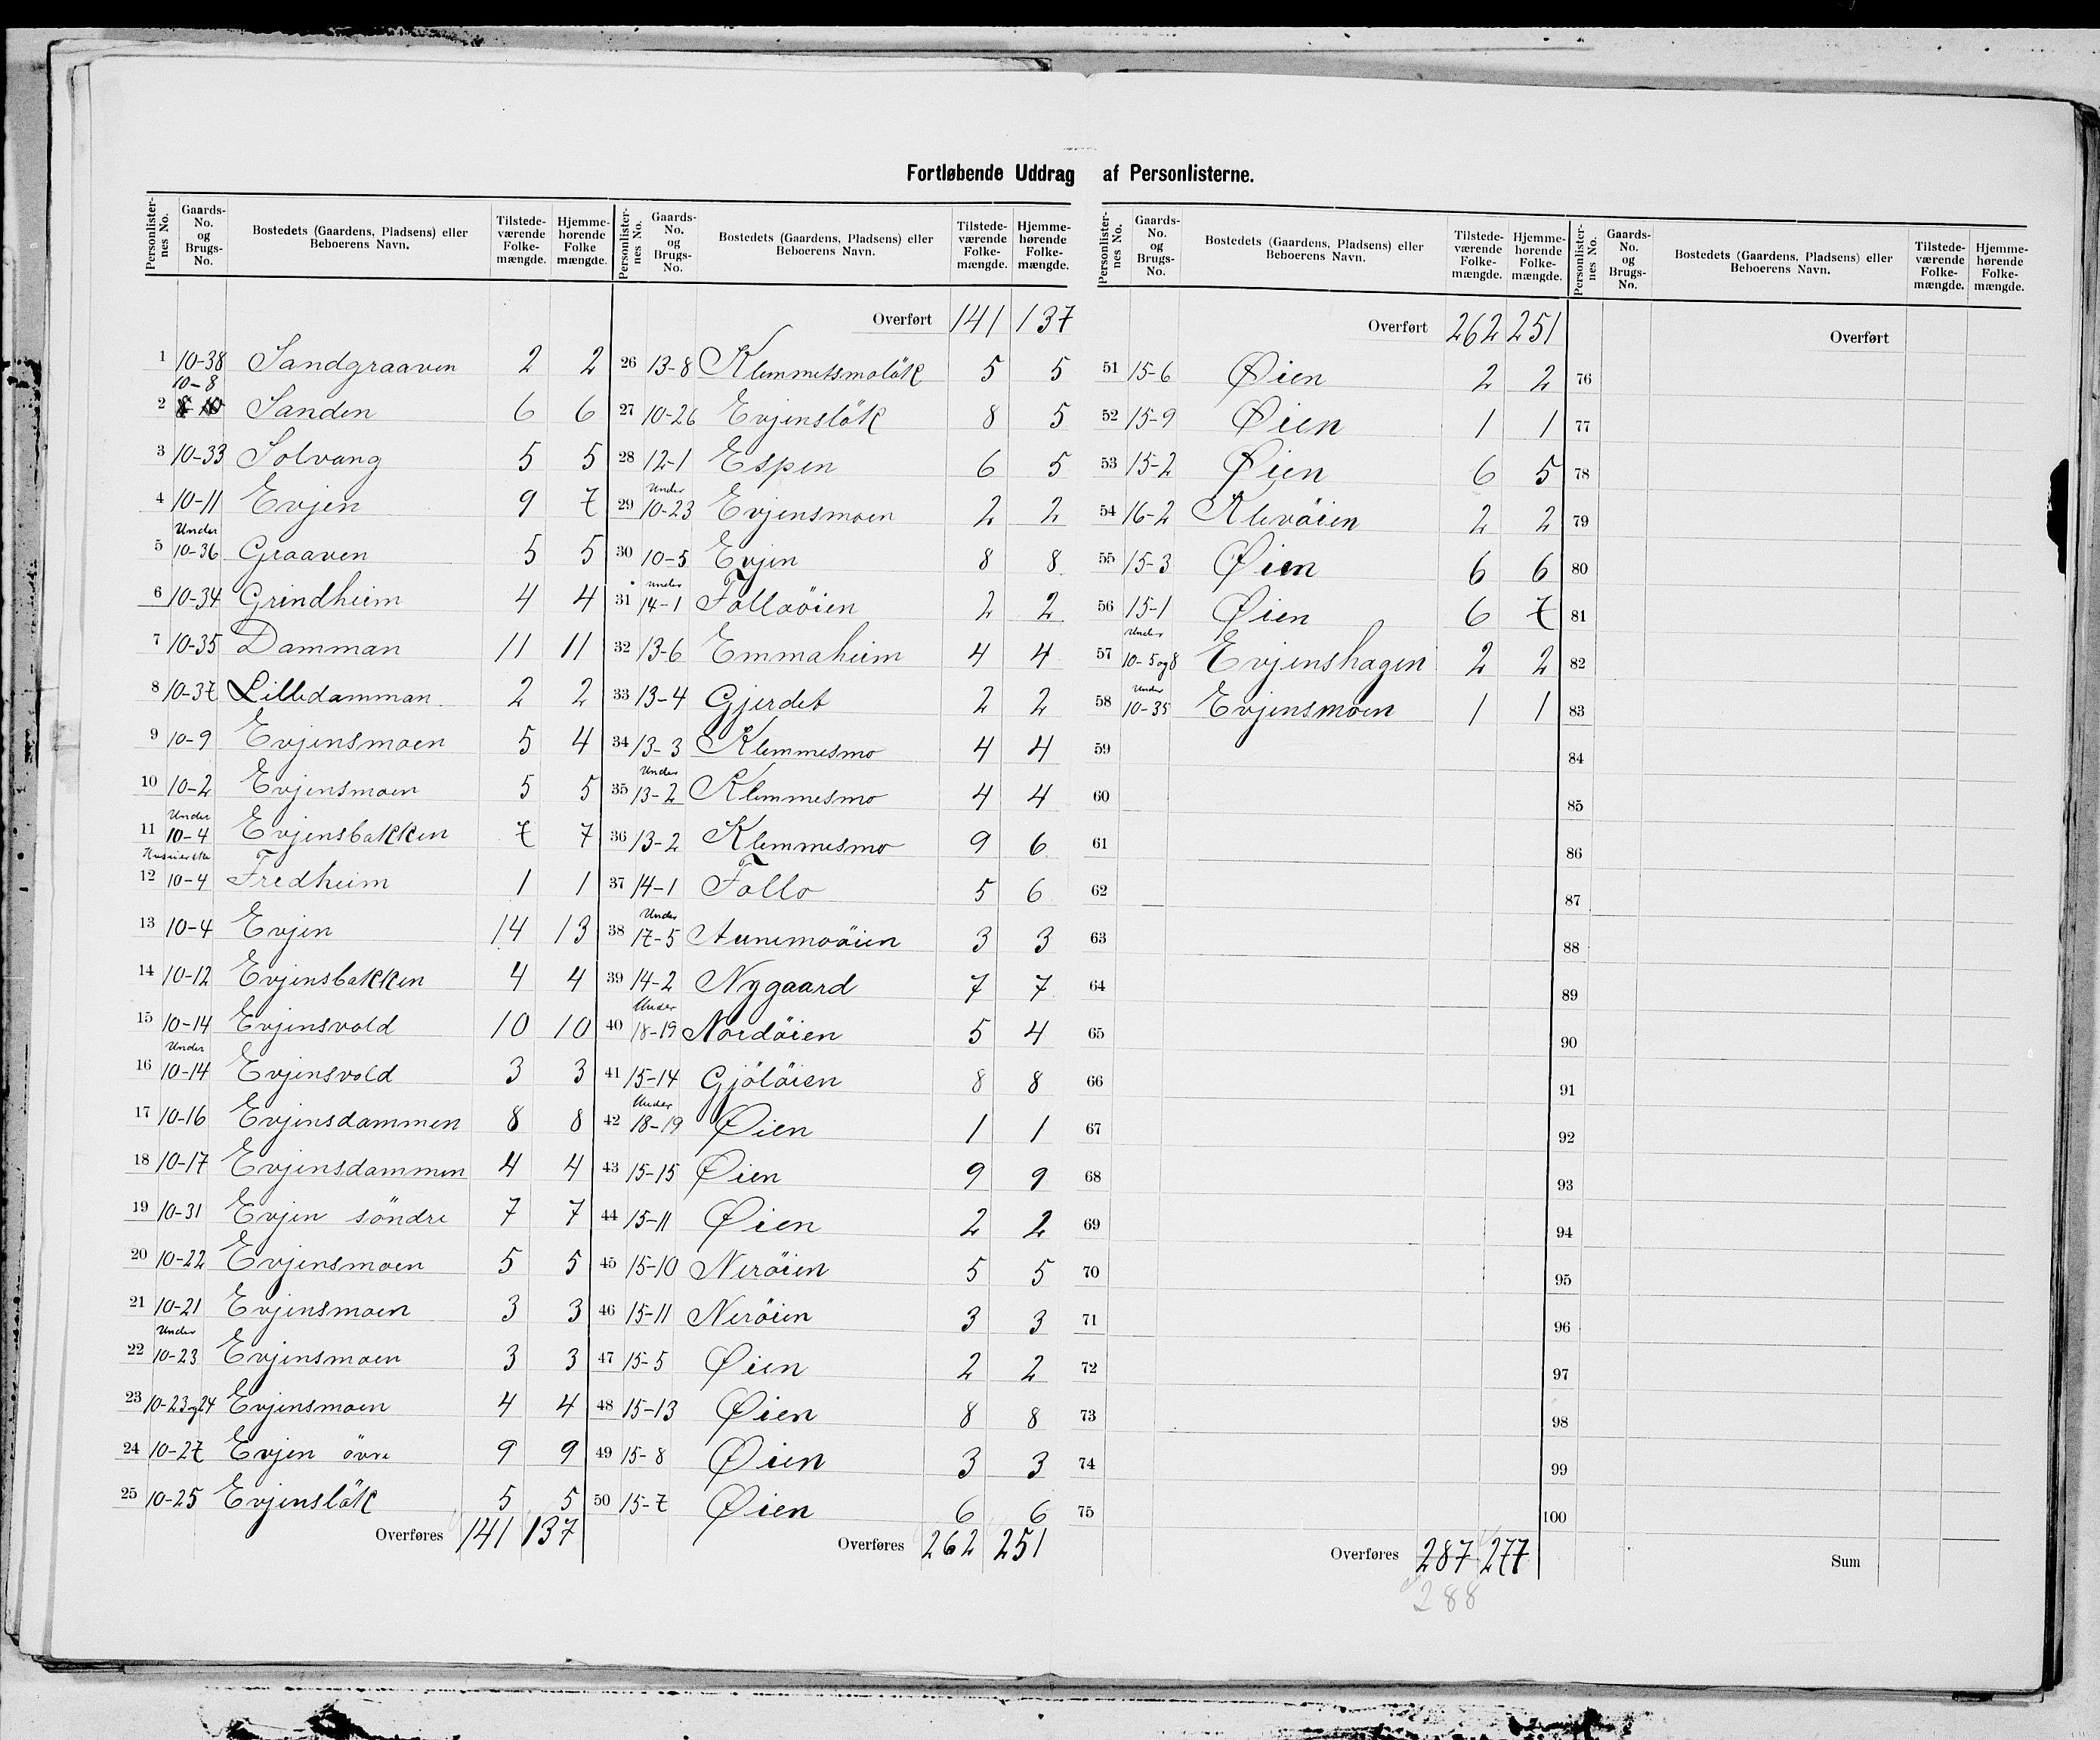 Fortløbende Uddrag af Personlisterne.
Personlister-nes No. | Gaards-No. og Brugs-No. | Bostedets (Gaardens, Pladsens) eller Beboerens Navn. | Tilstede-værende Folke-mængde. | Hjemme-hørende Folke mængde.
1 10-38 Sandgraaven 2 2
2 10-8 Sanden 6 6
3 10-33 Solvang 5 5
4 10-11 Evjen 9 7
5 Under 10-36 Graaven 5 5
6 10-34 Grindheim 4 4
7 10-35 Damman 11 11
8 10-37 Lilledamman 2 2
9 10-9 Evjensmoen 5 4
10 10-2 Evjensmoen 5 5
11 Under 10-4 Evjensbakken 7 7
12 10-4 Fredheim 1 1
13 10-4 Evjen 14 13
14 10-12 Evjensbakken 4 4
15 10-14 Evjensvold 10 10
16 Under 10-14 Evjensvold 3 3
17 10-16 Evjensdammen 8 8
18 10-17 Evjensdammen 4 4
19 10-31 Evjen söndre 7 7
20 10-22 Evjensmoen 5 5
21 10-21 Evjensmoen 3 3
22 Under 10-23 Evjensmoen 3 3
23 10-23og24 Evjensmoen 4 4
24 10-27 Evjen övre 9 9
25 10-25 Evjensløk 5 5
Overføres 141 137
Personlister-nes No. | Gaards-No. og Brugs-No. | Bostedets (Gaardens, Pladsens) eller Beboerens Navn. | Tilstede-værende Folke-mængde. | Hjemme-hørende Folke-mængde.
Overført 141 137
26 13-8 Klemmetsmoløk 5 5
27 10-26 Evjensløk 8 5
28 12-1 Espen 6 5
29 Under 10-23 Evjensmoen 2 2
30 10-5 Evjen 8 8
31 under 14-1 Folloöien 2 2
32 13-6 Emmaheim 4 4
33 13-4 Gjerdet 2 2
34 13-3 Klemmesmo 4 4
35 Under 13-2 Klemmesmo 4 4
36 13-2 Klemmesmo 9 6
37 14-1 Follo 5 6
38 Under 17-5 Aunemoöien 3 3
39 14-2 Nygaard 7 7
40 Under 18-19 Nordöien 5 4
41 15-14 Gjölöien 8 8
42 Under 18-19 Øien 1 1
43 15-15 Øien 9 9
44 15-11 Øien 2 2
45 15-10 Neröien 5 5
46 15-11 Neröien 3 3
47 15-5 Øien 2 2
48 15-13 Øien 8 8
49 15-8 Øien 3 3
50 15-7 Øien 6 6
Overføres 262 251
Personlister-nes No. | Gaards-No. og Brugs-No. | Bostedets (Gaardens, Pladsens) eller Beboerens Navn. | Tilstede-værende Folke-mængde. | Hjemme-hørende Folke-mængde.
Overført 262 251
51 15-6 Øien 2 2
52 15-9 Øien 1 1
53 15-2 Øien 6 5
54 16-2 Klevöien 2 2
55 15-3 Øien 6 6
56 15-1 Øien 6 7
57 Under 10-5og8 Evjenshagen 2 2
58 Under 10-35 Evjensmoen 1 1
59
60
61
62
63
64
65
66
67
68
69
70
71
72
73
74
75
Overføres 287 277
288
Personlister-nes No. | Gaards-No. og Brugs-No. | Bostedets (Gaardens, Pladsens) eller Beboerens Navn. | Tilstede-værende Folke-mængde. | Hjemme-hørende Folke-mængde.
Overført
76
77
78
79
80
81
82
83
84
85
86
87
88
89
90
91
92
93
94
95
96
97
98
99
100
Sum